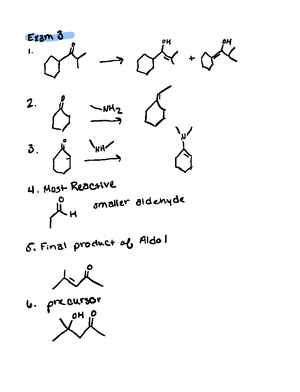 Exam 3
1.
O
OH
+
OH
2.
O
NH2
3.
O
NH
N
4. Most Reactive
O
H
smaller aldehyde
5. Final product of Aldol
O
6. precursor
OH O